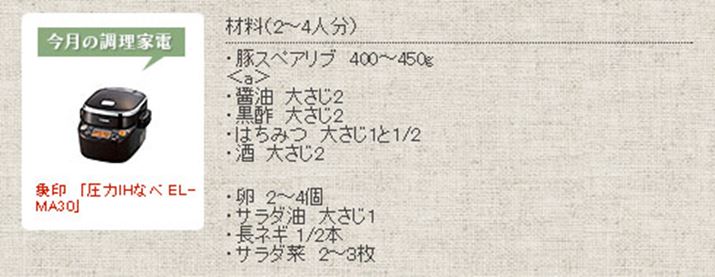 今月の調理家電
象印 「圧力IHなべ EL-
MA30」
材料(2～4人分)
・豚スペアリブ 400～450g
<a>
・醤油 大さじ2
・黒酢 大さじ2
・はちみつ 大さじ1と1/2
・酒 大さじ2
・卵 2～4個
・サラダ油 大さじ1
・長ネギ 1/2本
・サラダ菜 2～3枚